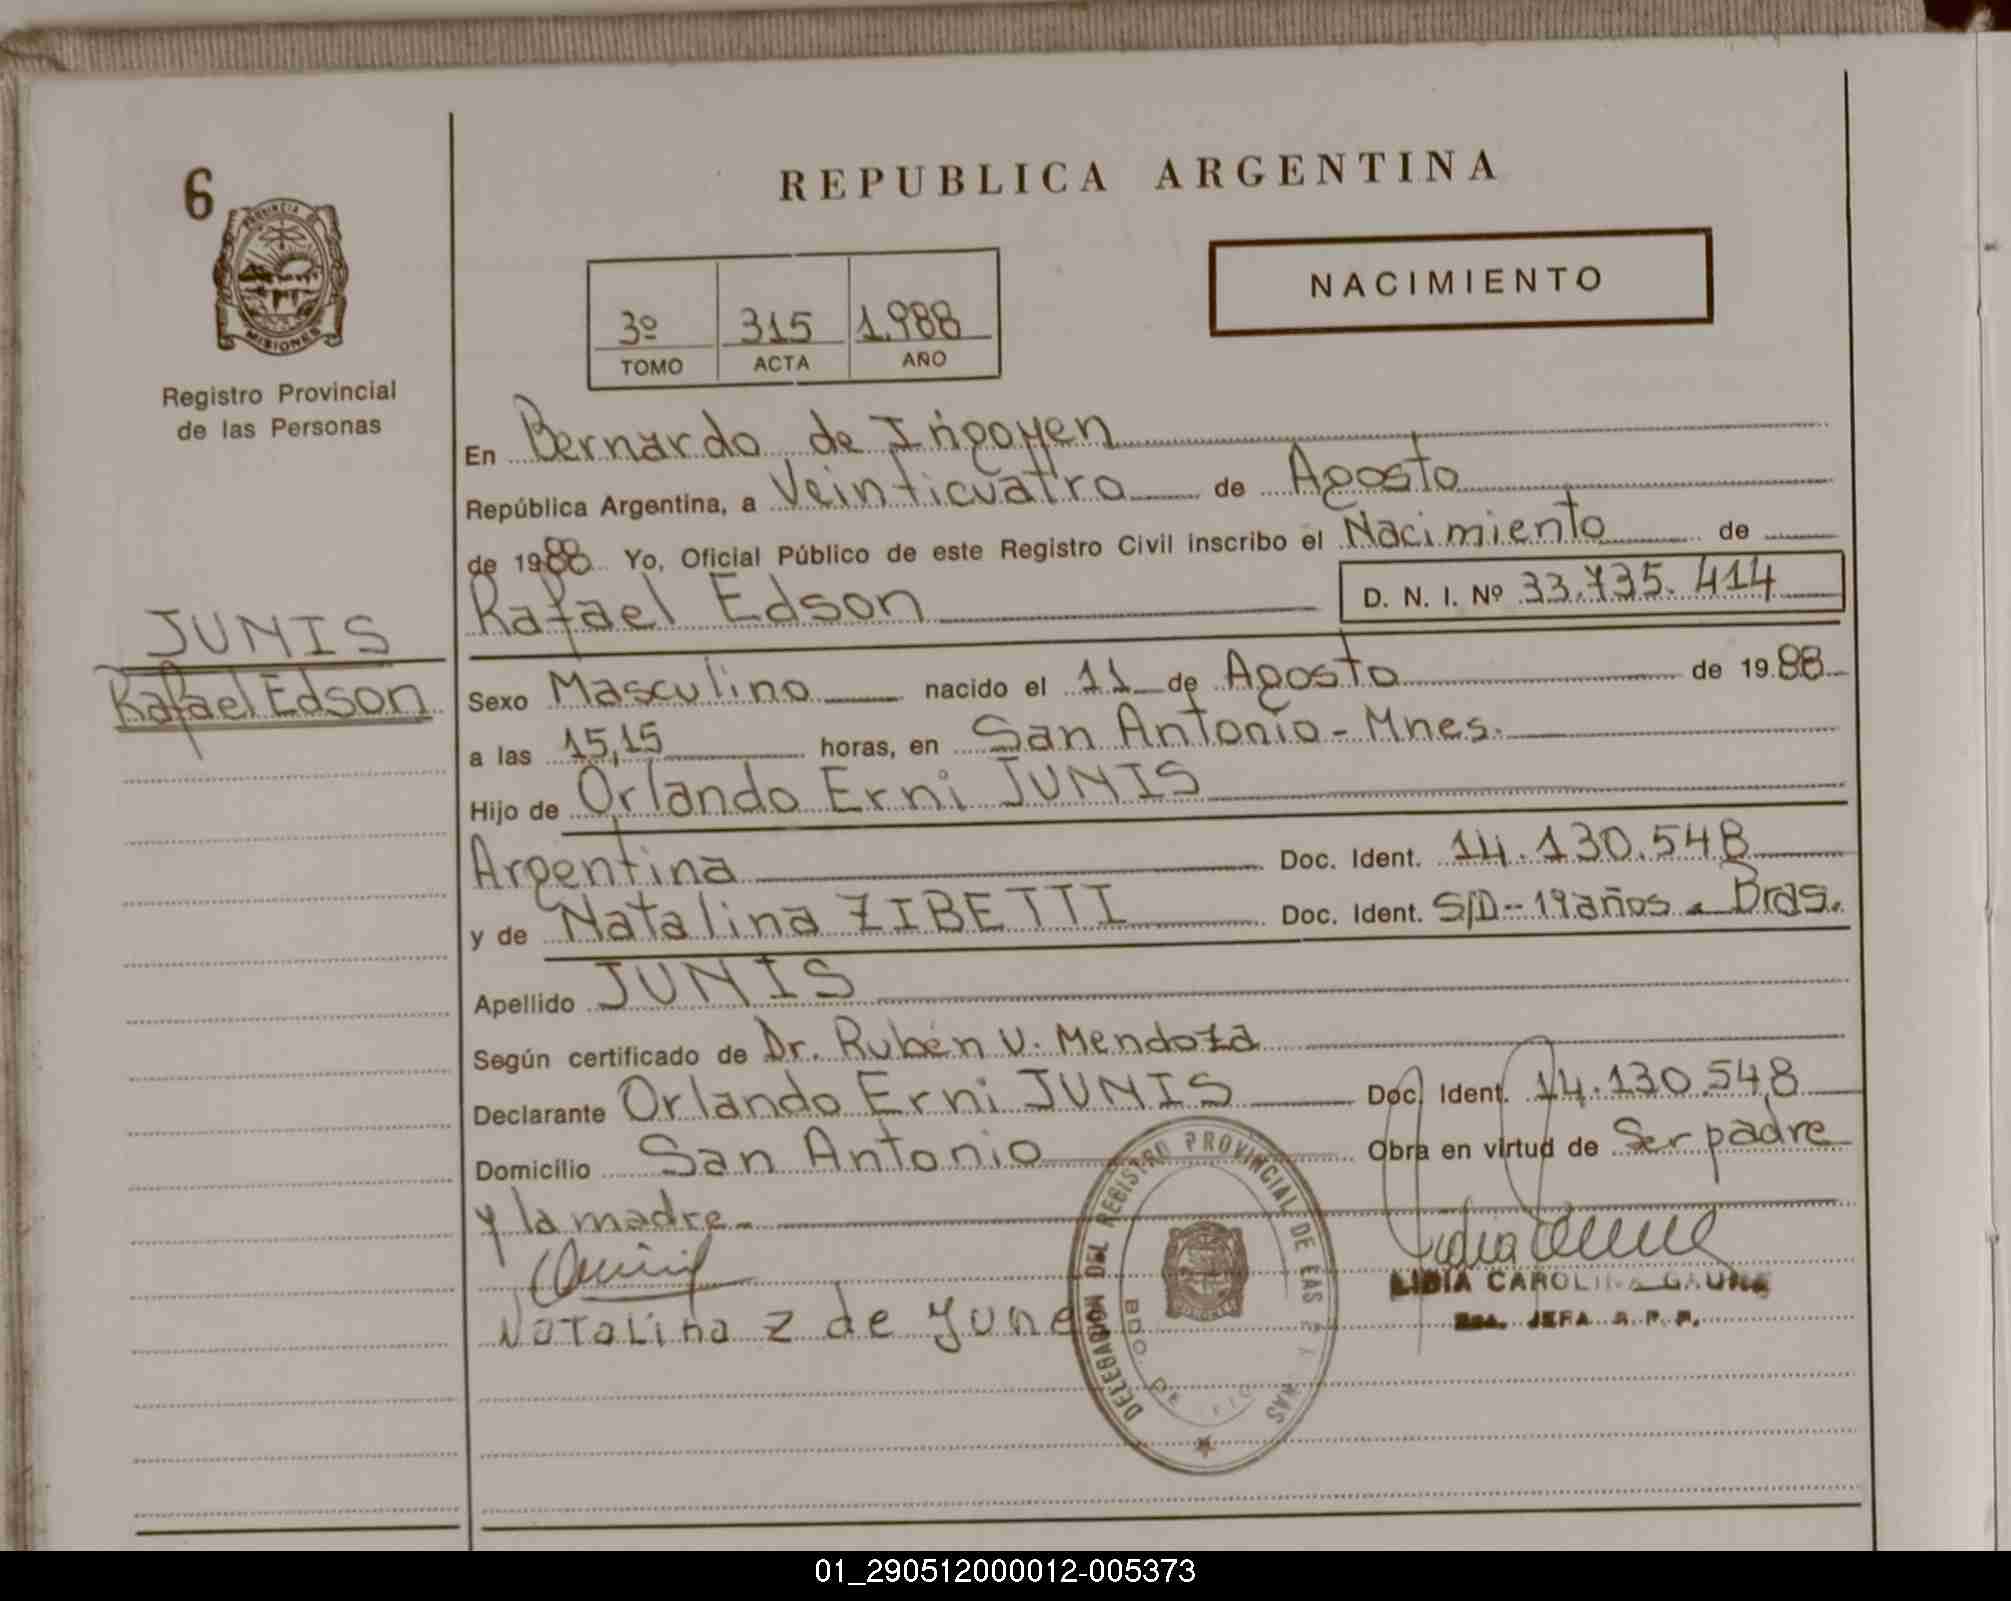 6
PROVINCIA DE
MISIONES
Registro Provincial
de las Personas
JUNIS
Rafael Edson
REPUBLICA ARGENTINA
NACIMIENTO
3º 315 1.988
TOMO ACTA AÑO
En Bernardo de Irigoyen
República Argentina, a Veinticuatro de Agosto
de 1988 Yo, Oficial Público de este Registro Civil inscribo el Nacimiento de
Rafael Edson D. N. I. Nº 33.735.414
Sexo Masculino nacido el 11 de Agosto de 19 88
a las 15,15 horas, en San Antonio - Mnes.
Hijo de Orlando Erni JUNIS
Argentina Doc. Ident. 14.130.548
y de Natalina ZIBETTI Doc. Ident. S/D - 19 años - Bras.
Apellido JUNIS
Según certificado de Dr. Rubén V. Mendoza
Declarante Orlando Erni JUNIS Doc. Ident. 14.130.548
Domicilio San Antonio Obra en virtud de Ser padre
y la madre.-
Natalina Z de June
DELEGACION DEL REGISTRO PROVINCIAL DE LAS
BDO. DE
LIDIA CAROLINA GAUNA
JEFA R. P. P.
01_290512000012-005373